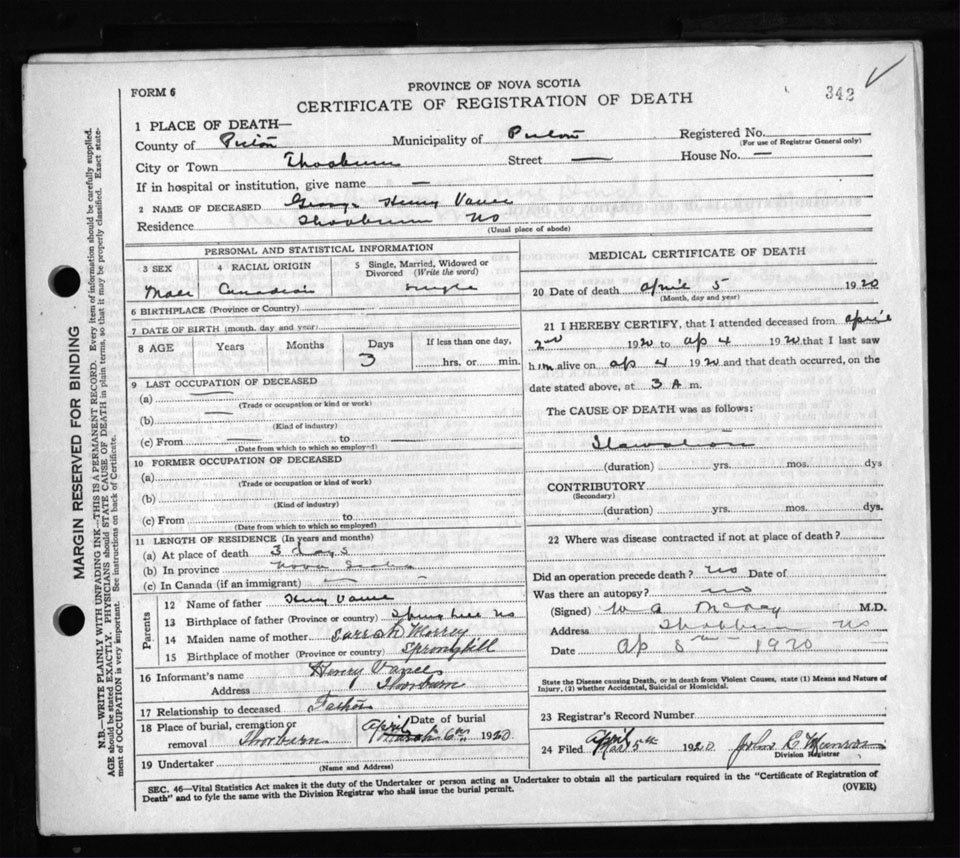 342
FORM 6
PROVINCE OF NOVA SCOTIA
CERTIFICATE OF REGISTRATION OF DEATH
1 PLACE OF DEATH—
County of Pictou Municipality of Pictou Registered No.
(For use of Registrar General only)
City or Town Thorburn Street — House No. —
If in hospital or institution, give name —
2 NAME OF DECEASED George Henry Vance
Residence Thorburn NS
(Usual place of abode)
PERSONAL AND STATISTICAL INFORMATION
3 SEX 4 RACIAL ORIGIN 5 Single, Married, Widowed or Divorced (Write the word)
Male Canadian Single
6 BIRTHPLACE (Province or Country)
7 DATE OF BIRTH (month, day and year)
8 AGE Years Months Days If less than one day,
3 hrs. or min.
9 LAST OCCUPATION OF DECEASED
(a) —
(Trade or occupation or kind of work)
(b) —
(Kind of industry)
(c) From — to —
(Date from which to which so employed)
10 FORMER OCCUPATION OF DECEASED
(a)
(Trade or occupation or kind of work)
(b)
(Kind of industry)
(c) From to
(Date from which to which so employed)
11 LENGTH OF RESIDENCE (In years and months)
(a) At place of death 3 days
(b) In province Nova Scotia
(c) In Canada (if an immigrant) — -
Parents
12 Name of father Henry Vance
13 Birthplace of father (Province or country) NS
14 Maiden name of mother Sarrah
15 Birthplace of mother (Province or country) Springhill
16 Informant's name Henry Vance
Address Thorburn
17 Relationship to deceased Father
18 Place of burial, cremation or removal Thorburn Date of burial April March 6th 1920
19 Undertaker
(Name and Address)
MEDICAL CERTIFICATE OF DEATH
20 Date of death April 5 1920
(Month, day and year)
21 I HEREBY CERTIFY, that I attended deceased from April
2nd 1920 to Ap 4 1920 that I last saw
him alive on Ap 4 1920 and that death occurred, on the
date stated above, at 3 A m.
The CAUSE OF DEATH was as follows:
(duration) yrs. mos. dys
CONTRIBUTORY
(Secondary)
(duration) yrs. mos. dys.
22 Where was disease contracted if not at place of death?
Did an operation precede death? no Date of
Was there an autopsy? no
(Signed) M.D.
Address Thorburn NS
Date Ap 5th 1920
State the Disease causing Death, or in death from Violent Causes, state (1) Means and Nature of
Injury, (2) whether Accidental, Suicidal or Homicidal.
23 Registrar's Record Number
24 Filed April 5th 1920 John C Munro
Division Registrar
SEC. 46—Vital Statistics Act makes it the duty of the Undertaker or person acting as Undertaker to obtain all the particulars required in the "Certificate of Registration of
Death" and to fyle the same with the Division Registrar who shall issue the burial permit. (OVER)
MARGIN RESERVED FOR BINDING
N.B.—WRITE PLAINLY WITH UNFADING INK—THIS IS A PERMANENT RECORD. Every item of information should be carefully supplied.
AGE should be stated EXACTLY. PHYSICIANS should STATE CAUSE OF DEATH in plain terms, so that it may be properly classified. Exact state-
ment of OCCUPATION is very important. See instructions on back of Certificate.